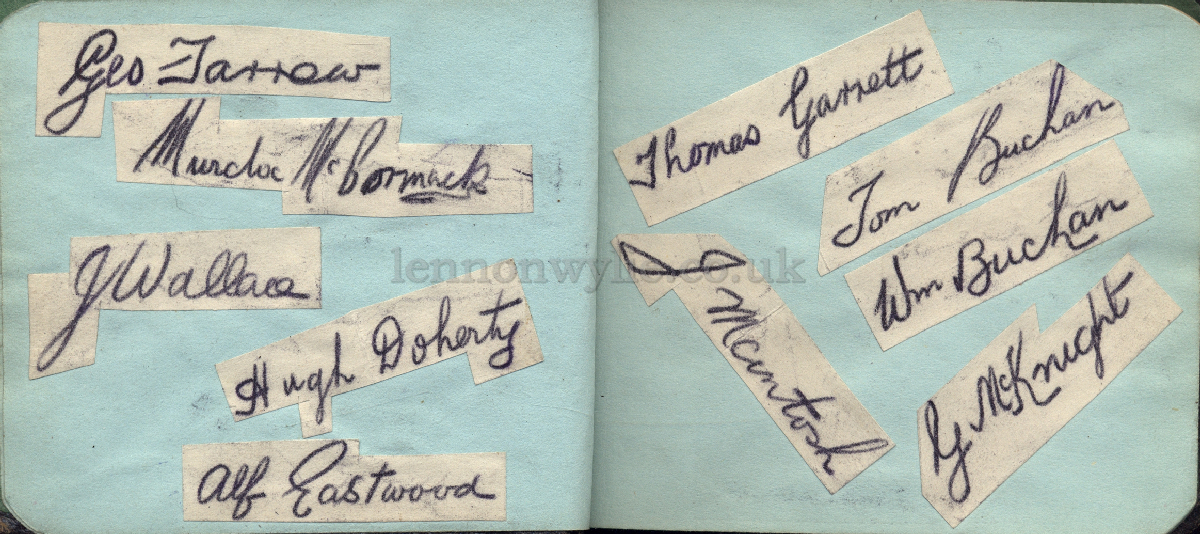 Geo Farrow
Murdo McCormack
J Wallace
Hugh Doherty
Alf Eastwood
Thomas Garrett
Tom Buchan
Wm Buchan
J Mcintosh
G McKnight
lennonwylie.co.uk